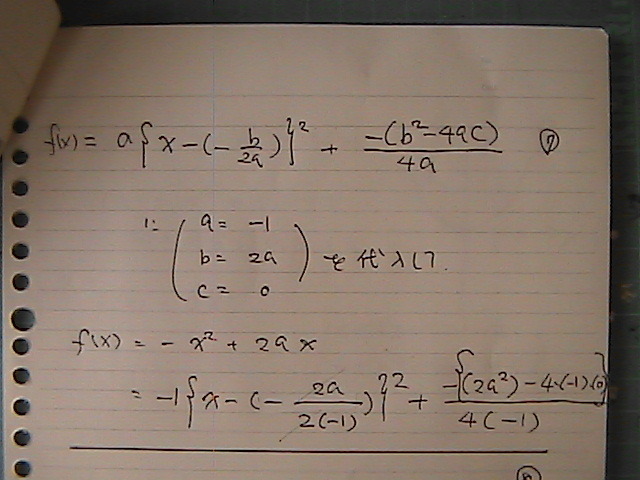 f(x) = a{x-(-b/2a)}² + -(b²-4ac)/4a
に (a = -1
b = 2a
c = 0) を代入して.
f(x) = - x² + 2ax
= -1{x-(-2a/2(-1))}² + -{(2a²)-4·(-1)·(0)}/4(-1)